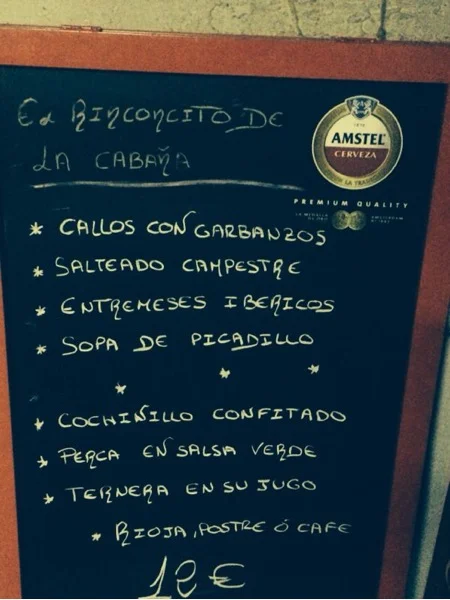 El RINCONCITO DE
LA CABAÑA
1870
AMSTEL
CERVEZA
PREMIUM QUALITY
* CALLOS CON GARBANZOS
* SALTEADO CAMPESTRE
* ENTREMESES IBERICOS
* SOPA DE PICADILLO
* * *
* COCHINILLO CONFITADO
* PERCA EN SALSA VERDE
* TERNERA EN SU JUGO
* RIOJA, POSTRE Ó CAFE
12€